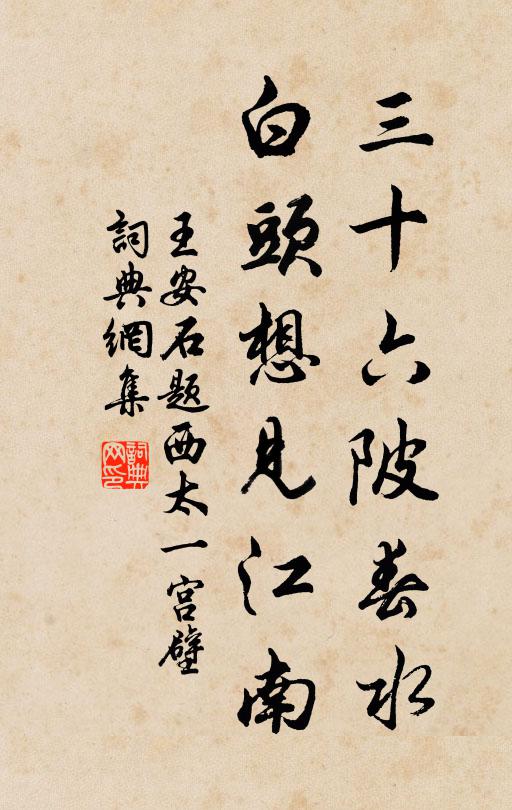 三十六陂春水
白頭想見江南
王安石题西太一宫壁
詞典網集
詞典网印